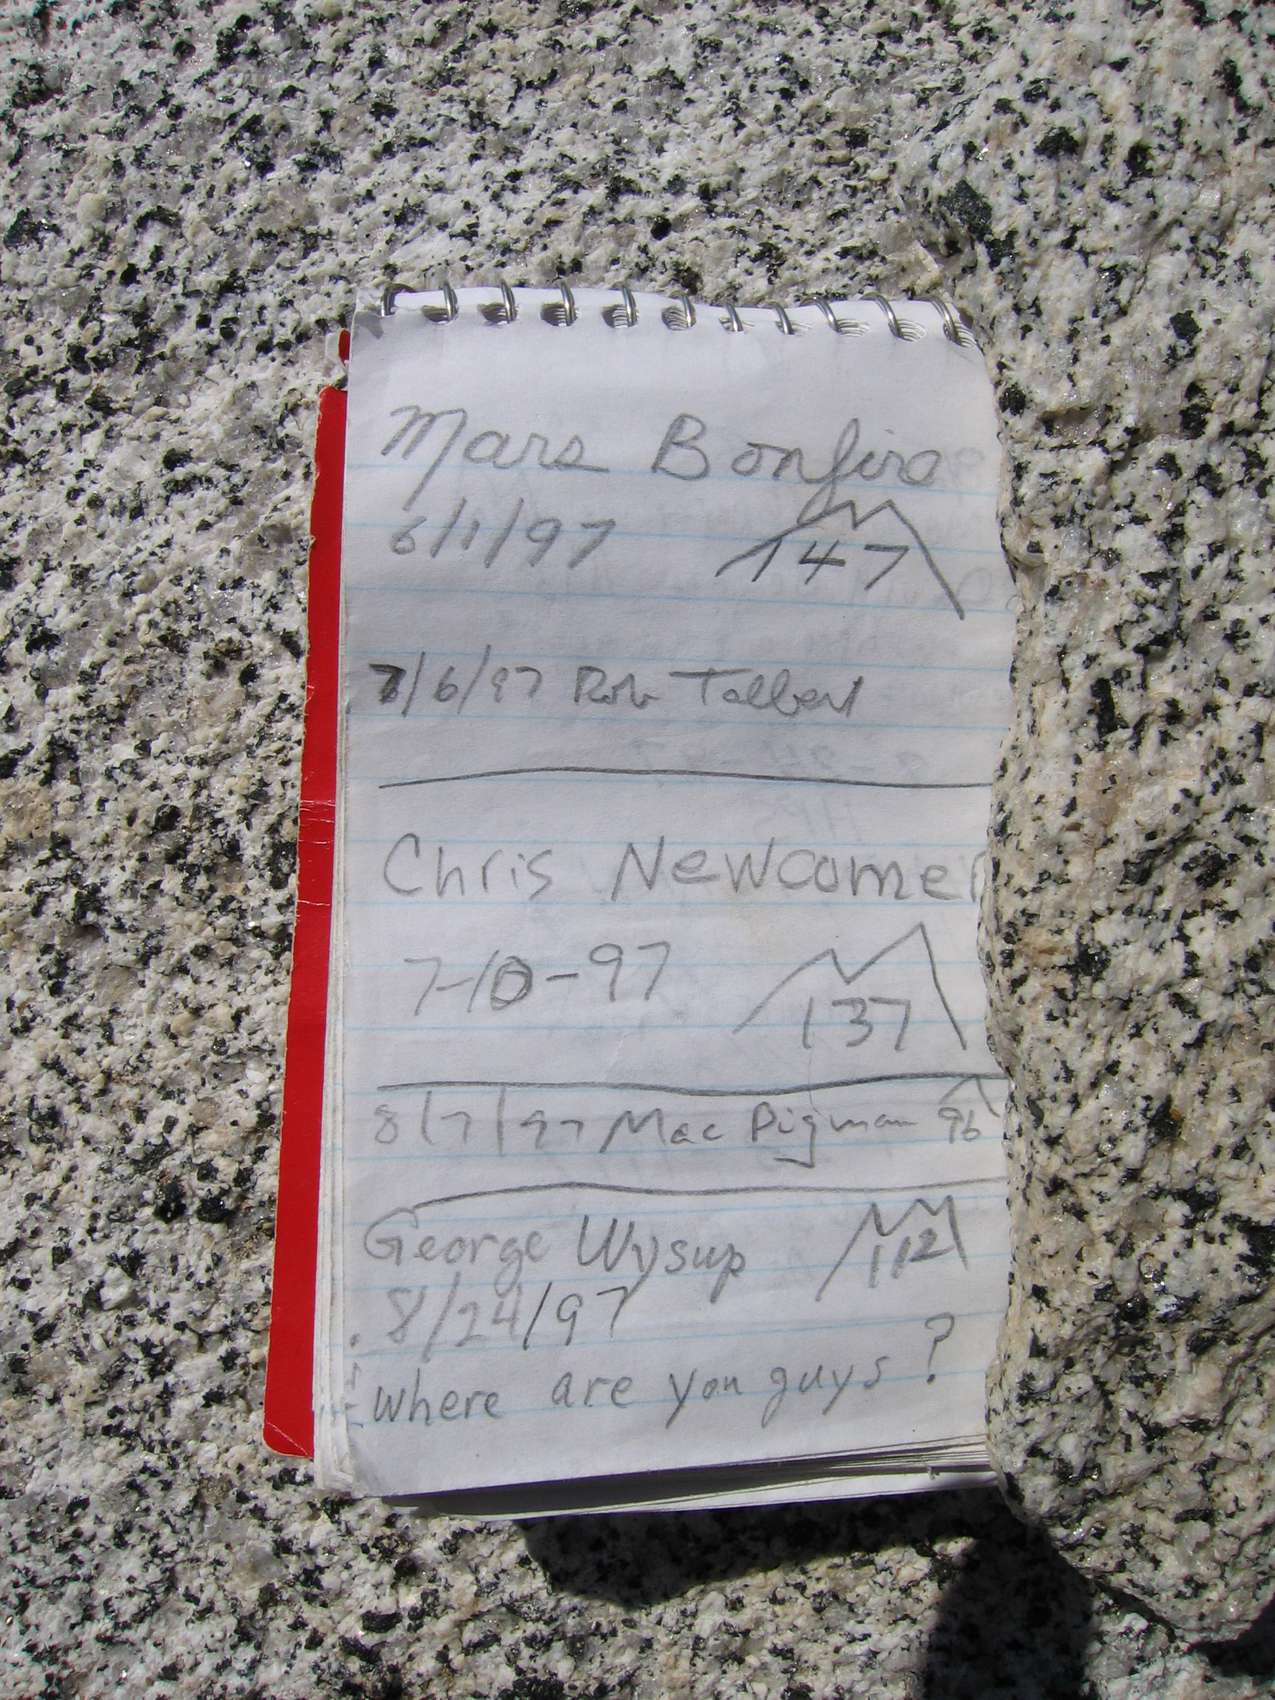 Mars Bonfire
6/1/97 147
7/6/97 Rob Talbert
Chris Newcomer
7-10-97 137
8/7/97 Mac Pigman 96
George Wysup 112
8/24/97
Where are you guys?